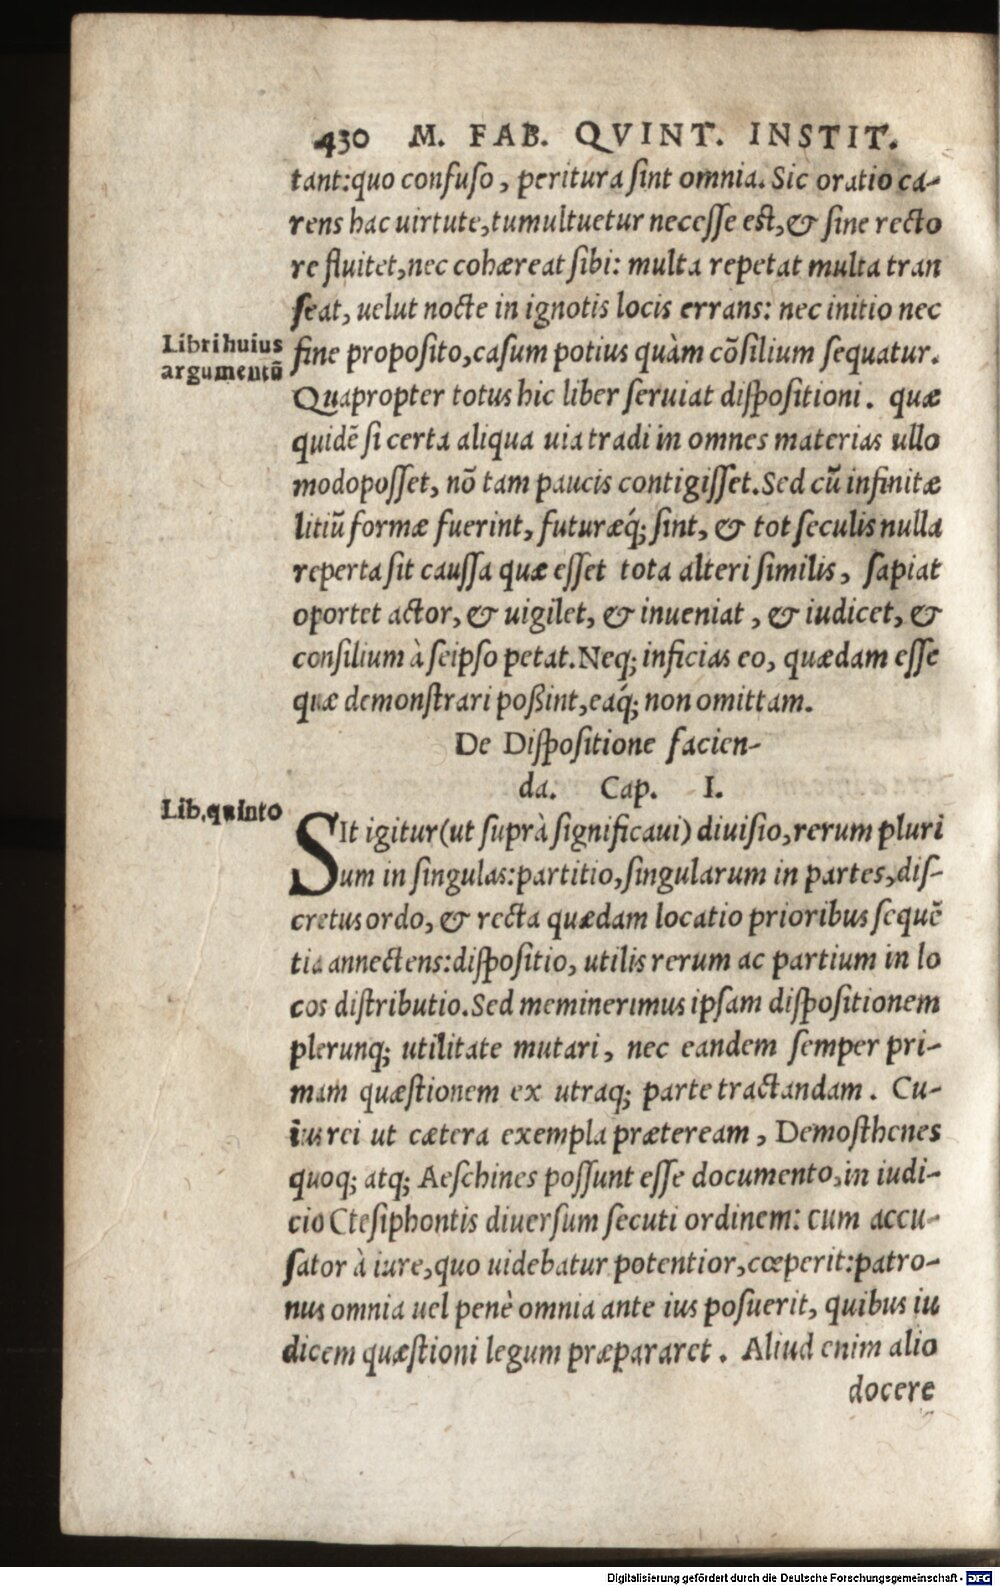 430 M. FAB. QVINT. INSTIT.
tant: quo confuso, peritura sint omnia. Sic oratio ca-
rens hac uirtute, tumultuetur necesse est, & sine recto
re fluitet, nec cohæreat sibi: multa repetat multa tran
seat, uelut nocte in ignotis locis errans: nec initio nec
Libri huius
argumentū
fine proposito, casum potius quàm cōsilium sequatur.
Quapropter totus hic liber seruiat dispositioni. quæ
quidē si certa aliqua uia tradi in omnes materias ullo
modo posset, nō tam paucis contigisset. Sed cū infinitæ
litiū formæ fuerint, futuræq́; sint, & tot seculis nulla
reperta sit caussa quæ esset tota alteri similis, sapiat
oportet actor, & uigilet, & inueniat, & iudicet, &
consilium à seipso petat. Neq; inficias eo, quædam esse
quæ demonstrari poßint, eaq́; non omittam.
De Dispositione facien-
da. Cap. I.
Lib. quinto
SIt igitur (ut suprà significaui) diuisio, rerum pluri
um in singulas: partitio, singularum in partes, dis-
cretus ordo, & recta quædam locatio prioribus sequē
tia annectens: dispositio, utilis rerum ac partium in lo
cos distributio. Sed meminerimus ipsam dispositionem
plerunq; utilitate mutari, nec eandem semper pri-
mam quæstionem ex utraq; parte tractandam. Cu-
ius rei ut cætera exempla præteream, Demosthenes
quoq; atq; Aeschines possunt esse documento, in iudi-
cio Ctesiphontis diuersum secuti ordinem: cum accu-
sator à iure, quo uidebatur potentior, cœperit: patro-
nus omnia uel penè omnia ante ius posuerit, quibus iu
dicem quæstioni legum præpararet. Aliud enim alio
docere
Digitalisierung gefördert durch die Deutsche Forschungsgemeinschaft - DFG